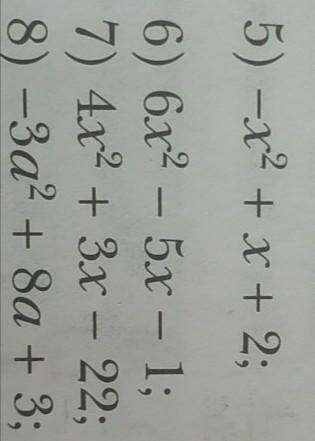 5) −x² + x + 2;
6) 6x² − 5x − 1;
7) 4x² + 3x − 22;
8) −3a² + 8a + 3;